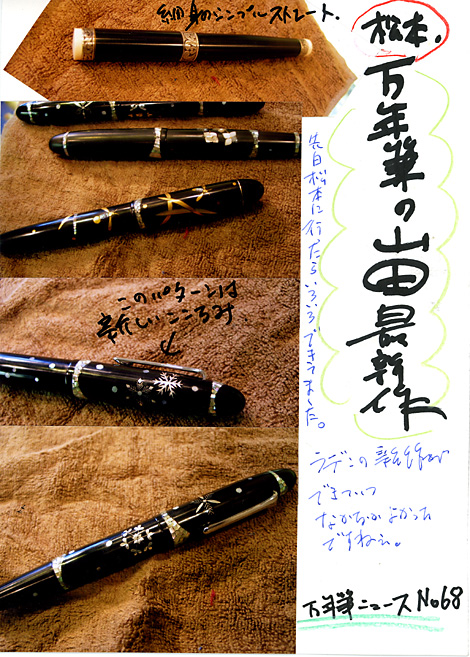 細身のシンプルストレート.
松本.
万年筆の山田最新作
先日松本に行ったらいろいろできてました。
このパターンは
新しいこころみ
ラデンの新作が
できていて
なかなかよかった
ですねぇ。
万年筆ニュース No68